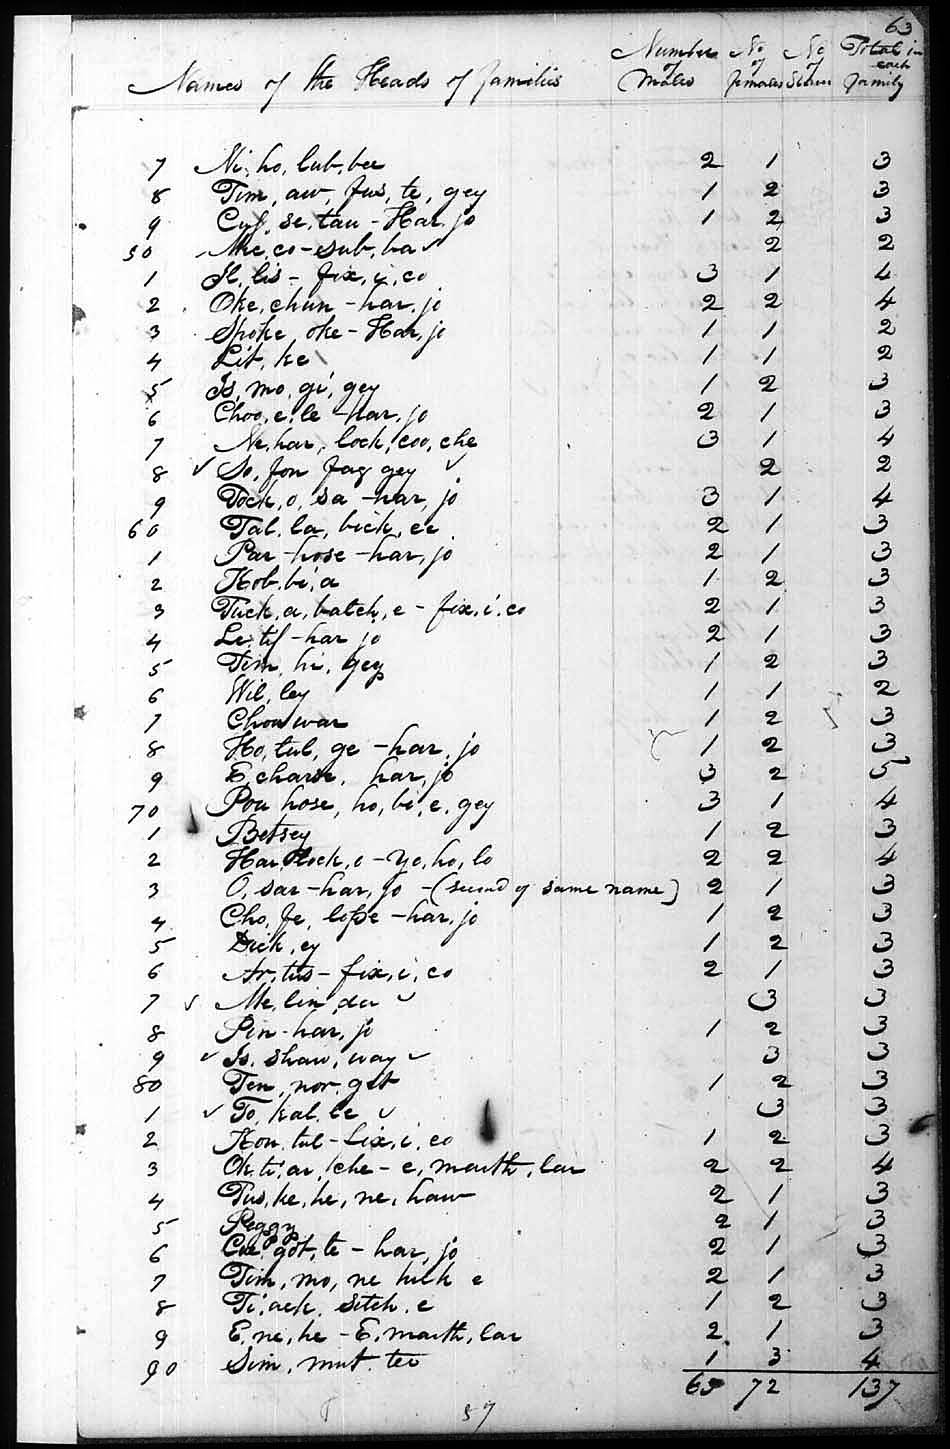 63
Names of the Heads of families Number of Males No of females No of Slaves Total in each family
7 Ni, ho, lub, bee 2 1 3
8 Tim, aw, fus, te, gey 1 2 3
9 Cuf, se, tau - Har, jo 1 2 3
50 Mic, co - sub, ba ✓ 2 2
1 Il, lis - fix, i, co 3 1 4
2 Oke, chun - har, jo 2 2 4
3 Spoke, oke - Har, jo 1 1 2
4 Lit, ke 1 1 2
5 Is, mo, gi, gey 1 2 3
6 Choo, e, le - har, jo 2 1 3
7 Ne, har, lock, coo, che 3 1 4
8 ✓ So, fon fag gey ✓ 2 2
9 Tock, o, sa - har, jo 3 1 4
60 Tal, la, bick, ee 2 1 3
1 Par - hose - har, jo 2 1 3
2 Hob, bi, a 1 2 3
3 Tuck, a, batch, e - fix, i, co 2 1 3
4 Le, tif - har jo 2 1 3
5 Tim, hi, gey 1 2 3
6 Wil, ley 1 1 2
7 Chou war 1 2 3
8 Ho, tul, ge - har, jo 1 2 3
9 E, charn, har, jo 3 2 5
70 Pou hose, ho, bi, e, gey 3 1 4
1 Betsey 1 2 3
2 Har, lock, o - Yo, ho, lo 2 2 4
3 O, sar - har, jo - (second of same name) 2 1 3
4 Cho, fe, lope - har, jo 1 2 3
5 Dick, ey 1 2 3
6 Ar, tus - fix, i, co 2 1 3
7 ✓ Me, lin, da ✓ 3 3
8 Pin - har, jo 1 2 3
9 ✓ Is, shaw, way ✓ 3 3
80 Ten, nor, get 1 2 3
1 ✓ To, kal, le ✓ 3 3
2 Kon, tul - fix, i, co 1 2 3
3 Ok, ti, ar, che - e, marth, lar 2 2 4
4 Tus, ke, he, ne, haw 2 1 3
5 Peggy 2 1 3
6 Coe, got, te - har, jo 2 1 3
7 Tim, mo, ne hulk e 2 1 3
8 Ti, ack, sitch, e 1 2 3
9 E, ne, he - E, marth, lar 2 1 3
90 Sim, mut, tee 1 3 4
65 72 137
57